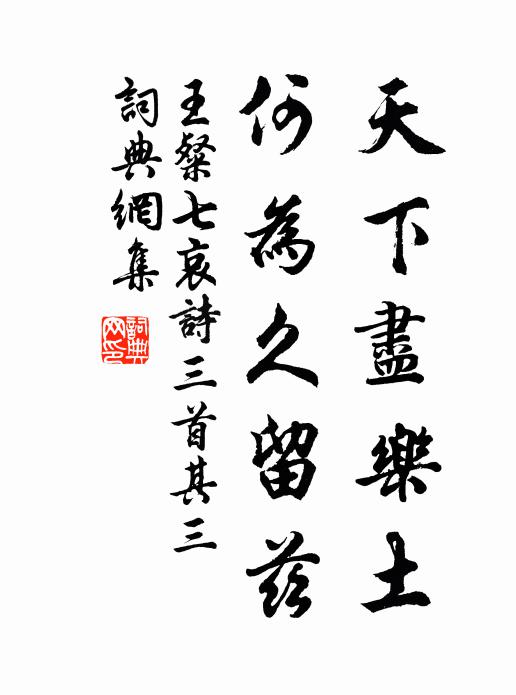 天下盡樂土
何為久留茲
王粲七哀詩三首其三
詞典網集
詞典网印